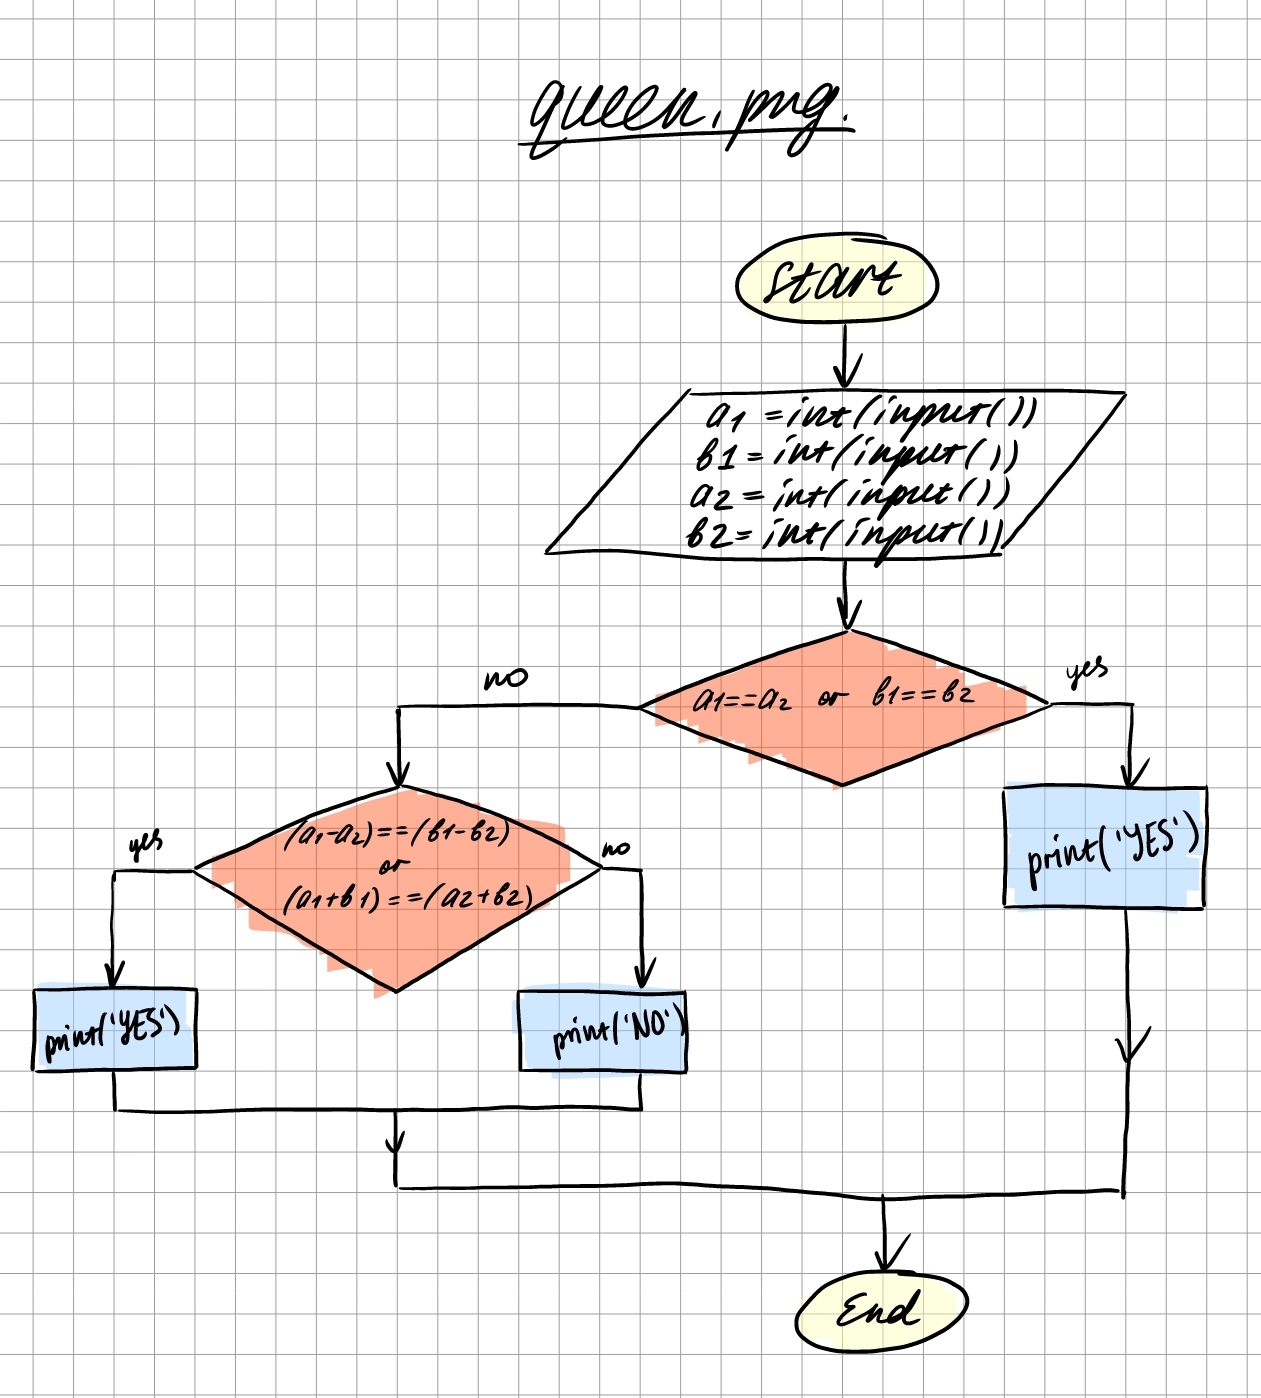 queen.png.
start
a1 = int(input())
b1 = int(input())
a2 = int(input())
b2 = int(input())
no
a1==a2 or b1==b2
yes
yes
(a1-a2)==(b1-b2)
or
(a1+b1)==(a2+b2)
no
print('YES')
print('YES')
print('NO')
End